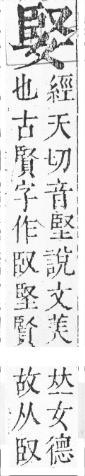 婜
經天切音堅說文美
也古賢字作臤堅賢
𠀤女德
故从臤